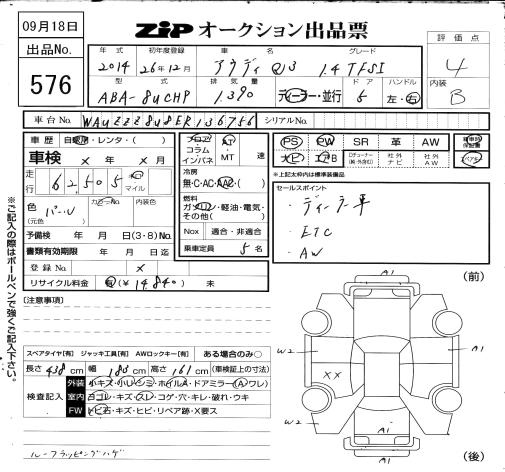 09月18日
ZIP オークション出品票
出品No.
576
評価点
4
内装
B
年式 初年度登録 車名 グレード
2014 26年12月 アウディ Q3 1.4 TFSI
型式 排気量 ドア ハンドル
ABA-8UCHP 1,390 ディーラー・並行 5 左・右
車台No. WAUZZZ8U8ER136756 シリアルNo.
車歴 自家用・レンタ・( )
車検 × 年 × 月
走行 62505 km マイル
色 (元色) パール カラーNo. 内装色
予備検 年 月 日(3・8)No.
書類有効期限 年 月 日迄
登録No. ×
リサイクル料金 有(¥14,840) 未
フロア コラム インパネ
AT MT 速
冷房
無・C・AC・AAC( )
燃料
ガソリン・軽油・電気・その他( )
Nox 適合・非適合
乗車定員 5名
PS PW SR 革 AW
ナビ エアB Dチューナー(純・外含む) 社外ナビ 社外AW
※上記太枠内は標準装備品
セールスポイント
・ディーラー車
・ETC
・AW
(注意事項)
スペアタイヤ[有] ジャッキ工具[有] AWロックキー[有] ある場合のみ○
長さ438cm 幅183cm 高さ161cm (車検証上の寸法)
検査記入
外装 小キズ・小リシミ・ホイルA・ドアミラー(A・ワレ)
室内 ヨゴレ・キズ・スレ・コゲ・穴・キレ・破れ・ウキ
FW トビ石・キズ・ヒビ・リペア跡・X要ス
ルーフラッピングハゲ
(前)
A1
W2
A1
XX
W2
A1
A1
(後)
※ご記入の際はボールペンで強くご記入下さい。